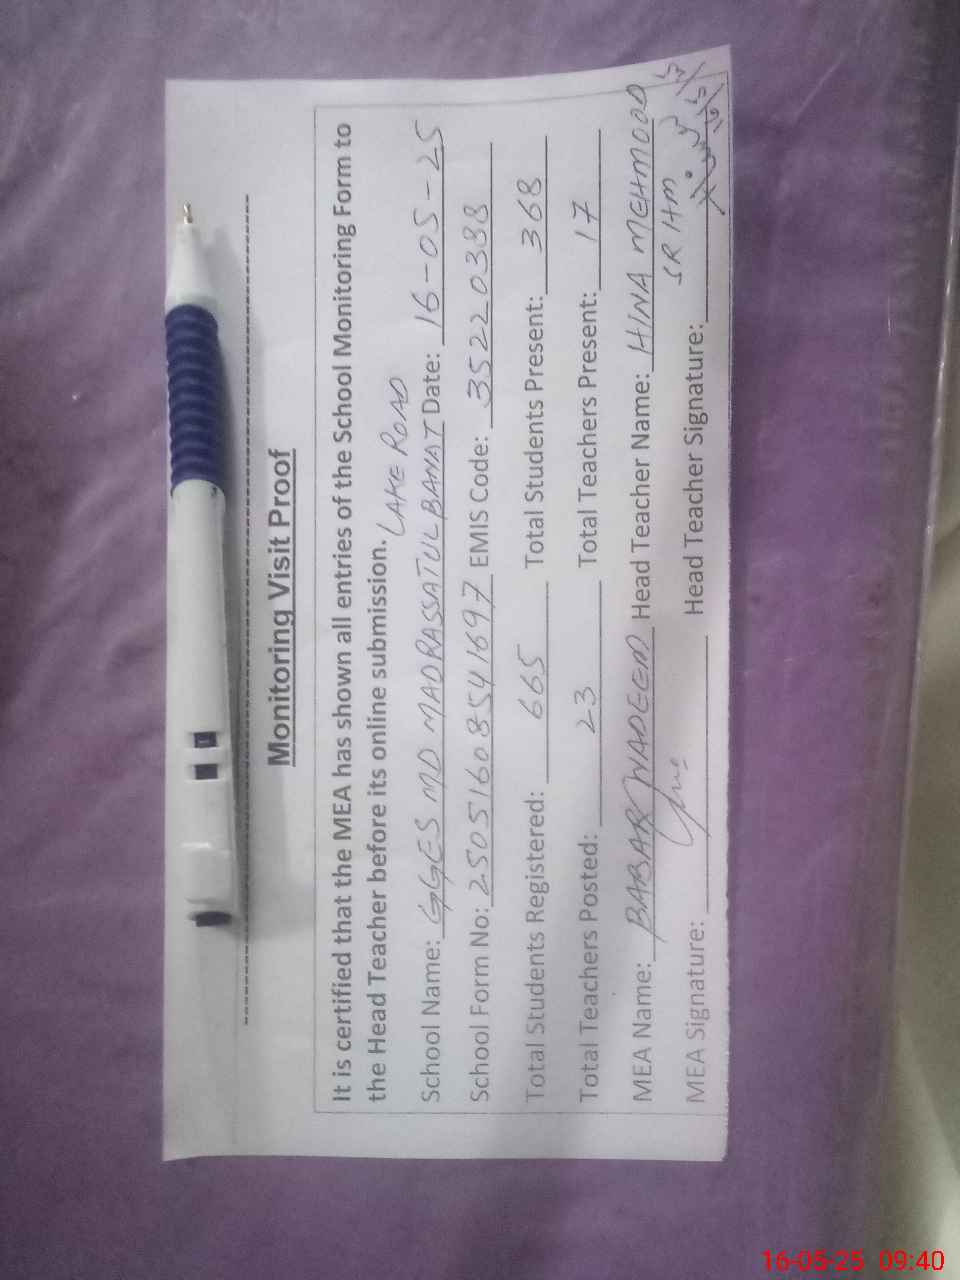 Monitoring Visit Proof
It is certified that the MEA has shown all entries of the School Monitoring Form to
the Head Teacher before its online submission.
LAKE ROAD
School Name: GGES MD MADRASSATUL BANAT Date: 16-05-25
School Form No: 2505160854 1697 EMIS Code: 35220388
Total Students Registered: 665 Total Students Present: 368
Total Teachers Posted: 23 Total Teachers Present: 17
MEA Name: BABAR NADEEM Head Teacher Name: HINA MEHMOOD
SR HM
MEA Signature: Head Teacher Signature:
16-05-25 09:40